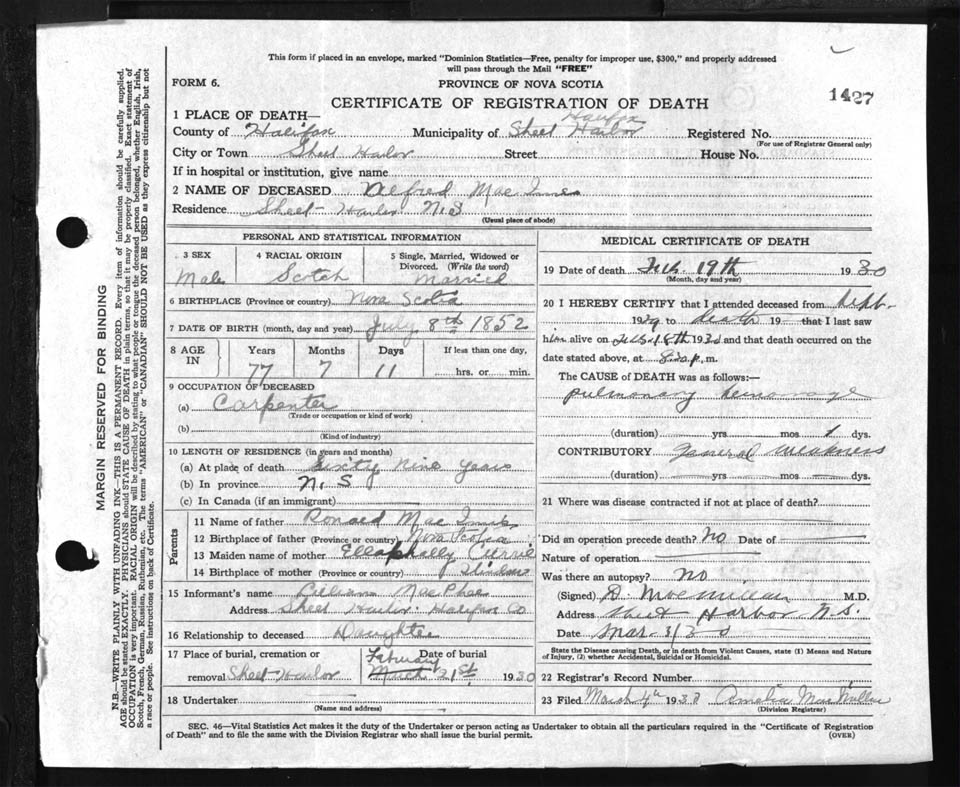 This form if placed in an envelope, marked "Dominion Statistics—Free, penalty for improper use, $300," and properly addressed
will pass through the Mail "FREE"
FORM 6.
PROVINCE OF NOVA SCOTIA
1427
CERTIFICATE OF REGISTRATION OF DEATH
1 PLACE OF DEATH—
Halifax
County of Halifax Municipality of Sheet Harbor Registered No.
(For use of Registrar General only)
City or Town Sheet Harbor Street House No.
If in hospital or institution, give name
2 NAME OF DECEASED Alfred Mac Innes
Residence Sheet Harbor N.S
(Usual place of abode)
PERSONAL AND STATISTICAL INFORMATION
3 SEX 4 RACIAL ORIGIN 5 Single, Married, Widowed or
Divorced. (Write the word)
Male Scotch Married
6 BIRTHPLACE (Province or country) Nova Scotia
7 DATE OF BIRTH (month, day and year) July 8th 1852
8 AGE IN Years Months Days If less than one day,
77 7 11 hrs. or min.
9 OCCUPATION OF DECEASED
(a) Carpenter
(Trade or occupation or kind of work)
(b)
(Kind of industry)
10 LENGTH OF RESIDENCE (in years and months)
(a) At place of death sixty nine years
(b) In province N. S
(c) In Canada (if an immigrant)
Parents
11 Name of father Ronald Mac Innis
12 Birthplace of father (Province or country) Nova Scotia
13 Maiden name of mother Currie
14 Birthplace of mother (Province or country)
15 Informant's name Lillian MacPhee
Address Sheet Harbor Halifax Co
16 Relationship to deceased Daughter
17 Place of burial, cremation or Date of burial
February
removal Sheet Harbor March 21st. 1930
18 Undertaker
(Name and address)
MEDICAL CERTIFICATE OF DEATH
19 Date of death Feb. 19th 1930
(Month, day and year)
20 I HEREBY CERTIFY that I attended deceased from Sept
1929 to death 19 that I last saw
him alive on Feb. 18th 1930 and that death occurred on the
date stated above, at 8.20 p. m.
The CAUSE of DEATH was as follows:—
pulmonary hemorrage
(duration) yrs mos 1 dys.
CONTRIBUTORY General weakness
(duration) yrs. mos. dys.
21 Where was disease contracted if not at place of death?
Did an operation precede death? No Date of
Nature of operation
Was there an autopsy? No
(Signed) D. M.D.
Address Sheet Harbor N.S.
Date Mar 3/30
State the Disease causing Death, or in death from Violent Causes, state (1) Means and Nature
of Injury, (2) whether Accidental, Suicidal or Homicidal.
22 Registrar's Record Number
23 Filed March 4th 1930 Amelia
(Division Registrar)
SEC. 46—Vital Statistics Act makes it the duty of the Undertaker or person acting as Undertaker to obtain all the particulars required in the "Certificate of Registration
of Death" and to file the same with the Division Registrar who shall issue the burial permit.
(OVER)
MARGIN RESERVED FOR BINDING
N.B.—WRITE PLAINLY WITH UNFADING INK—THIS IS A PERMANENT RECORD. Every item of information should be carefully supplied.
AGE should be stated EXACTLY. PHYSICIANS should STATE CAUSE OF DEATH in plain terms, so that it may be properly classified. Exact statement of
OCCUPATION is very important. RACIAL ORIGIN will be described by stating to what people or tongue the deceased person belonged, whether English, Irish,
Scotch, French, German, Russian, Ruthenian, etc. The terms "AMERICAN" or "CANADIAN" SHOULD NOT BE USED as they express citizenship but not
a race or people. See instructions on back of Certificate.